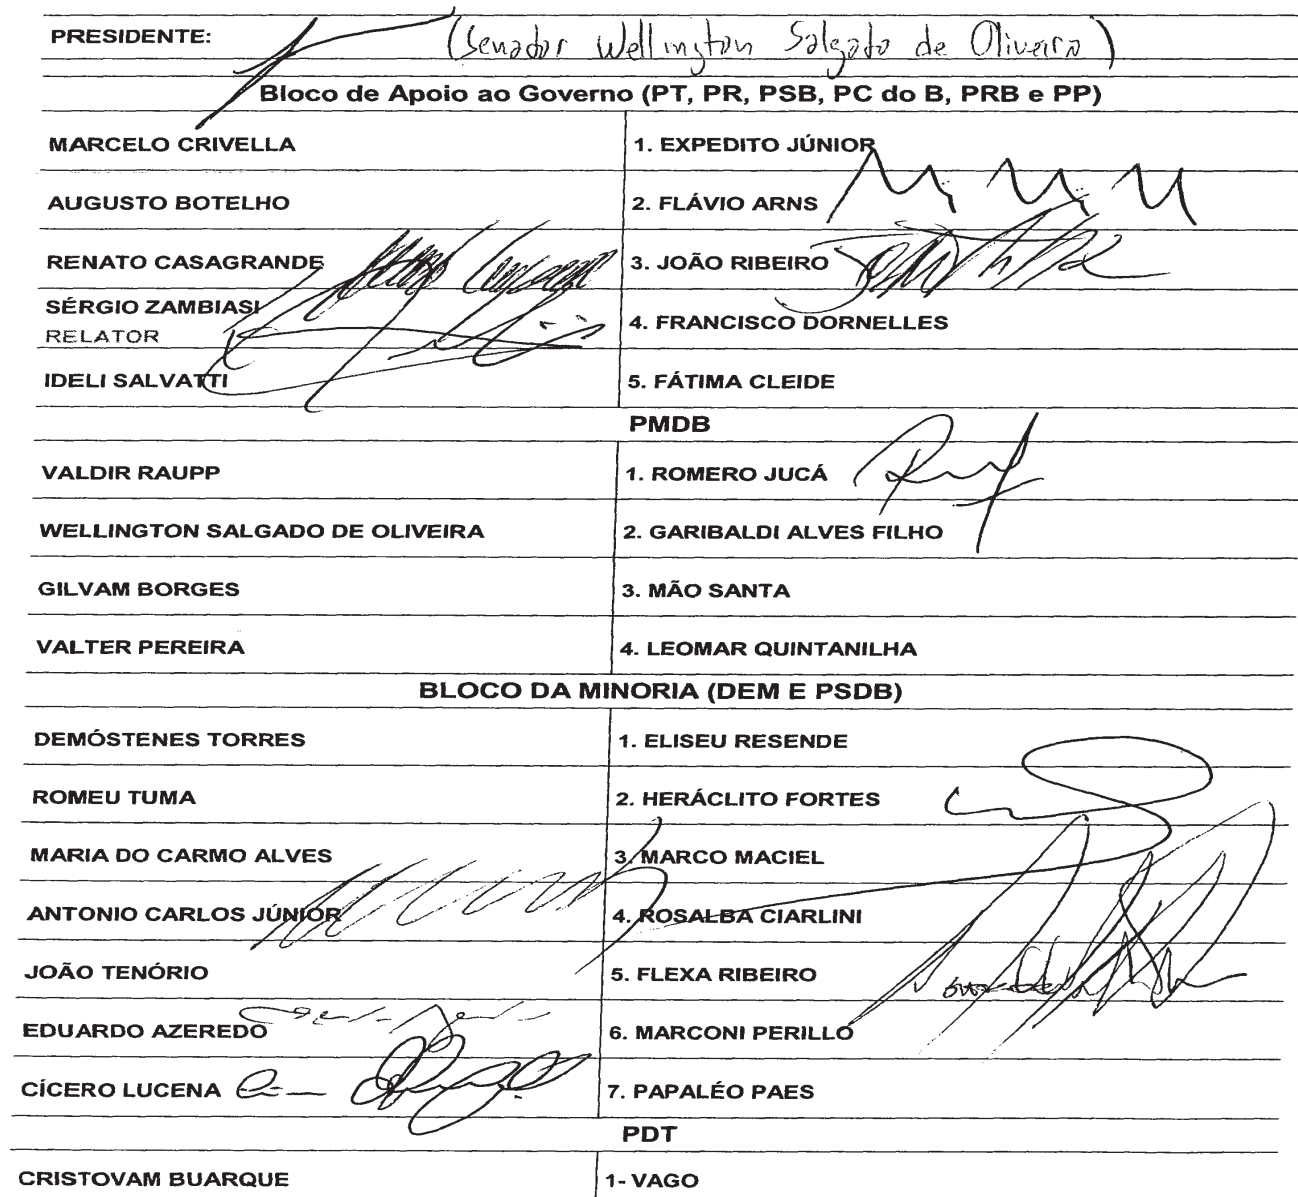 PRESIDENTE: (Senador Wellington Salgado de Oliveira)
Bloco de Apoio ao Governo (PT, PR, PSB, PC do B, PRB e PP)
MARCELO CRIVELLA 1. EXPEDITO JÚNIOR
AUGUSTO BOTELHO 2. FLÁVIO ARNS
RENATO CASAGRANDE 3. JOÃO RIBEIRO
SÉRGIO ZAMBIASI
RELATOR 4. FRANCISCO DORNELLES
IDELI SALVATTI 5. FÁTIMA CLEIDE
PMDB
VALDIR RAUPP 1. ROMERO JUCÁ
WELLINGTON SALGADO DE OLIVEIRA 2. GARIBALDI ALVES FILHO
GILVAM BORGES 3. MÃO SANTA
VALTER PEREIRA 4. LEOMAR QUINTANILHA
BLOCO DA MINORIA (DEM E PSDB)
DEMÓSTENES TORRES 1. ELISEU RESENDE
ROMEU TUMA 2. HERÁCLITO FORTES
MARIA DO CARMO ALVES 3. MARCO MACIEL
ANTONIO CARLOS JÚNIOR 4. ROSALBA CIARLINI
JOÃO TENÓRIO 5. FLEXA RIBEIRO
EDUARDO AZEREDO 6. MARCONI PERILLO
CÍCERO LUCENA 7. PAPALÉO PAES
PDT
CRISTOVAM BUARQUE 1- VAGO